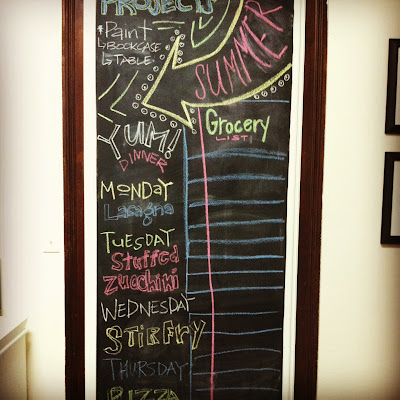 PROJECTS
Paint
BOOKCASE
TABLE
SUMMER
Grocery
LIST
YUM!
DINNER
MONDAY
Lasagna
TUESDAY
Stuffed
Zucchini
WEDNESDAY
STIR FRY
THURSDAY
PIZZA